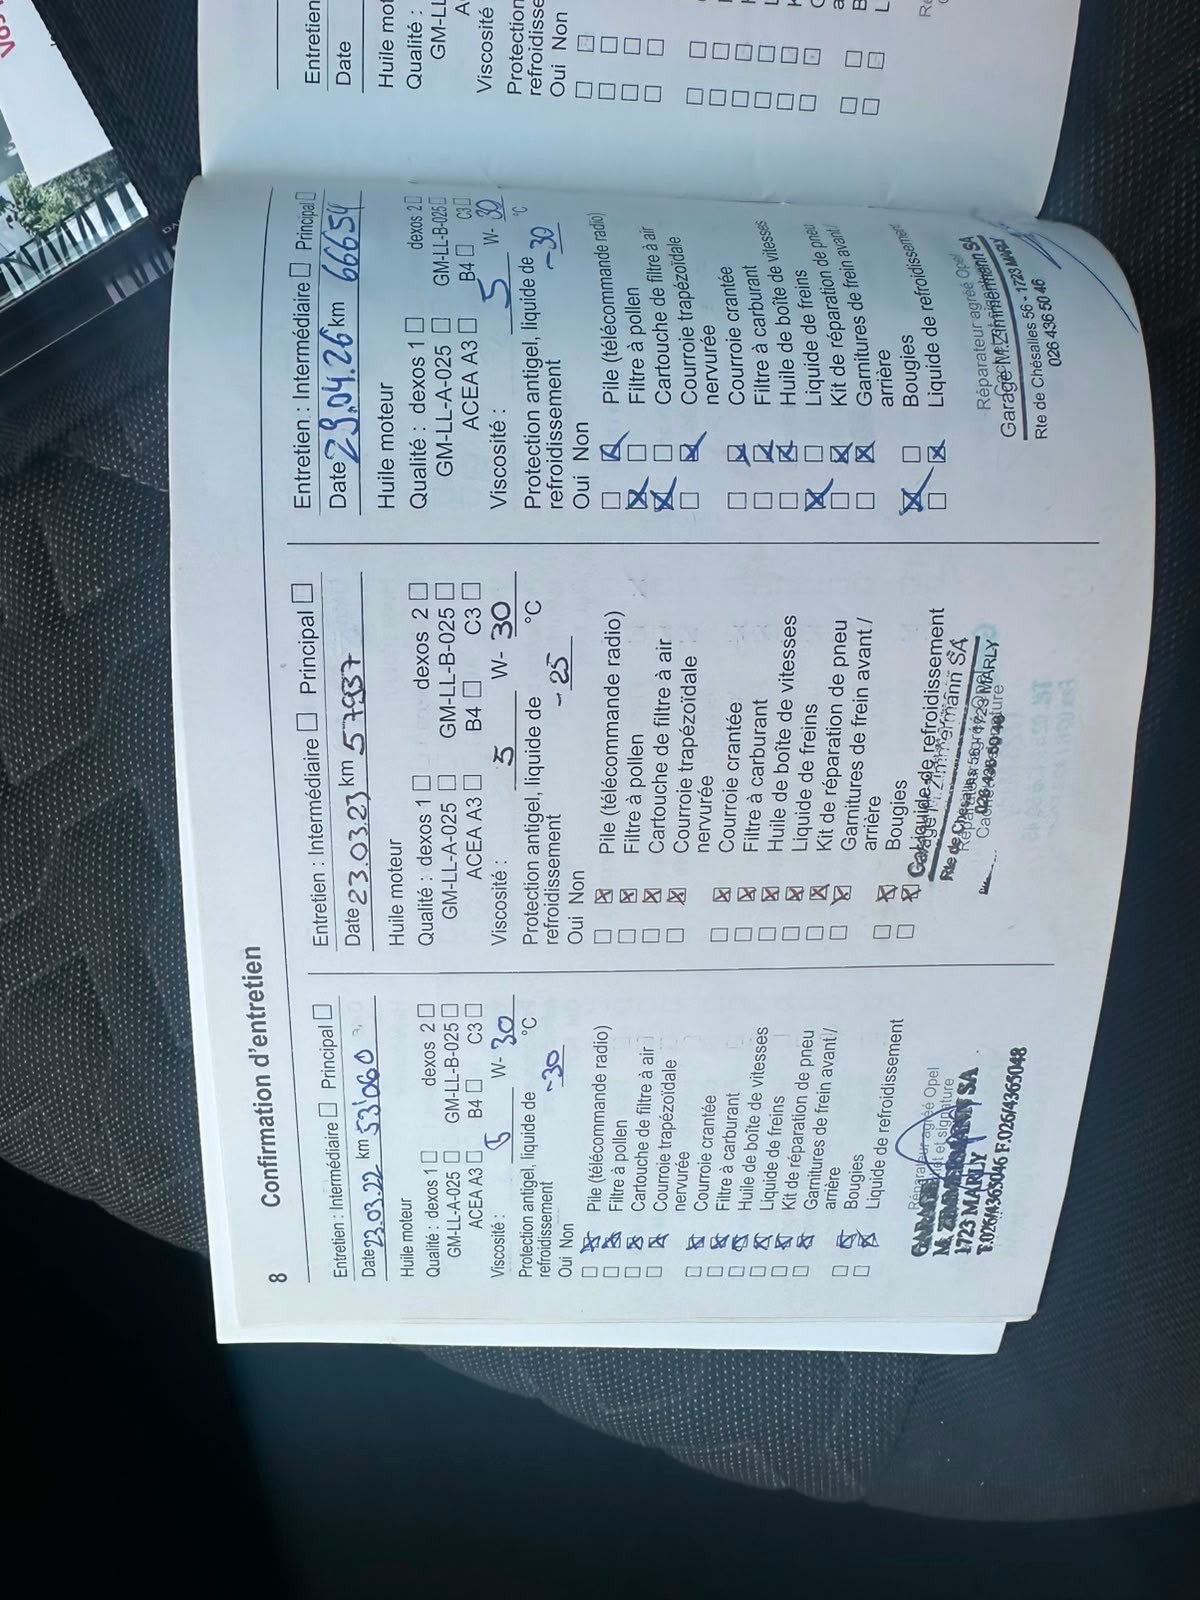 8 Confirmation d'entretien
Entretien : Intermédiaire □ Principal □
Date 23.03.22 km 53'060
Huile moteur
Qualité : dexos 1 □ dexos 2 □
GM-LL-A-025 □ GM-LL-B-025 □
ACEA A3 □ B4 □ C3 □
Viscosité : 5 W- 30
Protection antigel, liquide de
refroidissement -30 °C
Oui Non
□ ☒ Pile (télécommande radio)
□ ☒ Filtre à pollen
□ ☒ Cartouche de filtre à air
□ ☒ Courroie trapézoïdale
nervurée
□ ☒ Courroie crantée
□ ☒ Filtre à carburant
□ ☒ Huile de boîte de vitesses
□ ☒ Liquide de freins
□ ☒ Kit de réparation de pneu
□ ☒ Garnitures de frein avant /
arrière
□ ☒ Bougies
□ ☒ Liquide de refroidissement
Réparateur agréé Opel
et signature
M. ZIMMERMANN SA
1723 MARLY
T.026/4365046 F.026/4365048
Entretien : Intermédiaire □ Principal □
Date 23.03.23 km 57937
Huile moteur
Qualité : dexos 1 □ dexos 2 □
GM-LL-A-025 □ GM-LL-B-025 □
ACEA A3 □ B4 □ C3 □
Viscosité : 5 W- 30
Protection antigel, liquide de
refroidissement -25 °C
Oui Non
□ ☒ Pile (télécommande radio)
□ ☒ Filtre à pollen
□ ☒ Cartouche de filtre à air
□ ☒ Courroie trapézoïdale
nervurée
□ ☒ Courroie crantée
□ ☒ Filtre à carburant
□ ☒ Huile de boîte de vitesses
□ ☒ Liquide de freins
□ ☒ Kit de réparation de pneu
□ ☒ Garnitures de frein avant /
arrière
□ ☒ Bougies
□ ☒ Liquide de refroidissement
Garage M.Zimmermann SA
Rte de Chésalles 56 - 1723 MARLY
026 436 50 46
Entretien : Intermédiaire □ Principal □
Date 29.04.26 km 66654
Huile moteur
Qualité : dexos 1 □ dexos 2 □
GM-LL-A-025 □ GM-LL-B-025 □
ACEA A3 □ B4 □ C3 □
Viscosité : 5 W- 30
Protection antigel, liquide de
refroidissement -30 °C
Oui Non
□ ☒ Pile (télécommande radio)
☒ □ Filtre à pollen
☒ □ Cartouche de filtre à air
□ ☒ Courroie trapézoïdale
nervurée
□ ☒ Courroie crantée
□ ☒ Filtre à carburant
□ ☒ Huile de boîte de vitesses
☒ □ Liquide de freins
□ ☒ Kit de réparation de pneu
□ ☒ Garnitures de frein avant /
arrière
☒ □ Bougies
□ ☒ Liquide de refroidissement
Réparateur agréé Opel
Garage M.Zimmermann SA
Rte de Chésalles 56 - 1723 MARLY
026 436 50 46
Entretien
Date
Huile
Qualité :
Viscosité
Protection
Oui Non